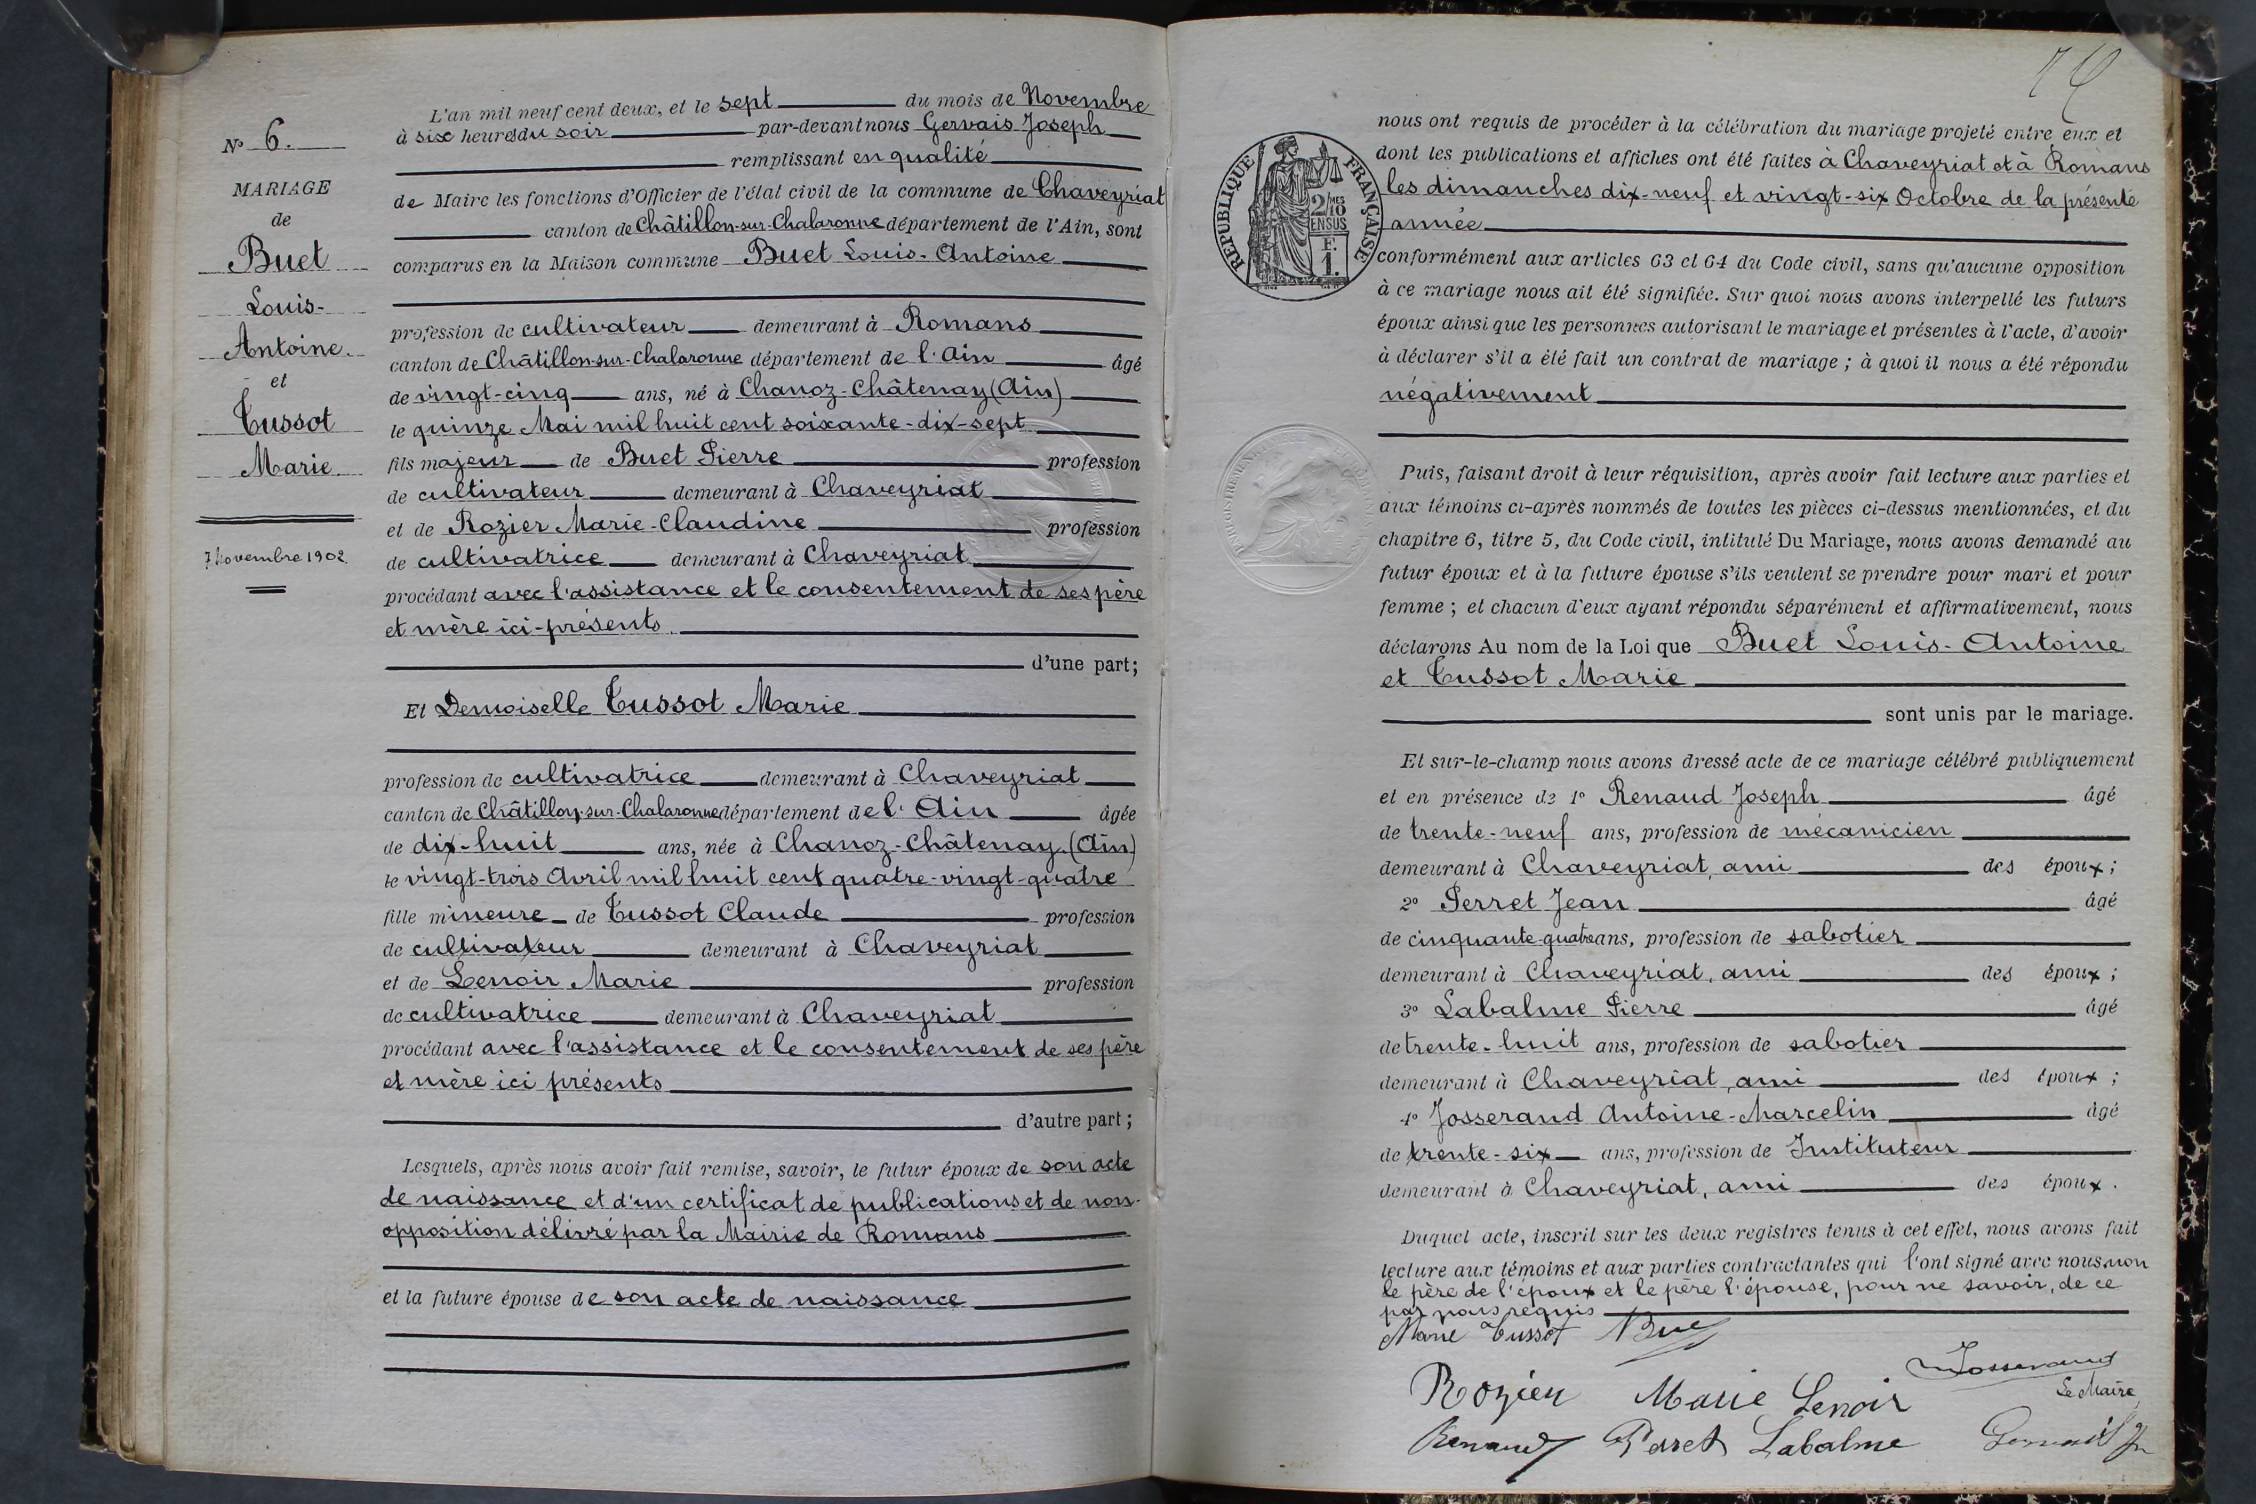 L'an mil neuf cent deux, et le sept du mois de Novembre
à six heures du soir par-devant nous Gervais Joseph
remplissant en qualité
de Maire les fonctions d'Officier de l'état civil de la commune de Chaveyriat
canton de Châtillon-sur-Chalaronne département de l'Ain, sont
comparus en la Maison commune Buet Louis-Antoine
profession de cultivateur demeurant à Romans
canton de Châtillon-sur-Chalaronne département de l'Ain âgé
de vingt-cinq ans, né à Chanoz-Châtenay (Ain)
le quinze Mai mil huit cent soixante-dix-sept
fils majeur de Buet Pierre profession
de cultivateur demeurant à Chaveyriat
et de Rozier Marie-Claudine profession
de cultivatrice demeurant à Chaveyriat
procédant avec l'assistance et le consentement de ses père
et mère ici-présents.
d'une part;
Et Demoiselle Tussot Marie
profession de cultivatrice demeurant à Chaveyriat
canton de Châtillon-sur-Chalaronne département de l'Ain âgée
de dix-huit ans, née à Chanoz-Châtenay (Ain)
le vingt-trois Avril mil huit cent quatre-vingt-quatre
fille mineure de Tussot Claude profession
de cultivateur demeurant à Chaveyriat
et de Lenoir Marie profession
de cultivatrice demeurant à Chaveyriat
procédant avec l'assistance et le consentement de ses père
et mère ici présents
d'autre part;
Lesquels, après nous avoir fait remise, savoir, le futur époux de son acte
de naissance et d'un certificat de publications et de non-
opposition délivré par la Mairie de Romans
et la future épouse de son acte de naissance
N° 6.
MARIAGE
de
Buet
Louis-
Antoine.
et
Tussot
Marie
7 Novembre 1902
nous ont requis de procéder à la célébration du mariage projeté entre eux et
dont les publications et affiches ont été faites à Chaveyriat et à Romans
les dimanches dix-neuf et vingt-six Octobre de la présente
année
conformément aux articles 63 et 64 du Code civil, sans qu'aucune opposition
à ce mariage nous ait été signifiée. Sur quoi nous avons interpellé les futurs
époux ainsi que les personnes autorisant le mariage et présentes à l'acte, d'avoir
à déclarer s'il a été fait un contrat de mariage ; à quoi il nous a été répondu
négativement
Puis, faisant droit à leur réquisition, après avoir fait lecture aux parties et
aux témoins ci-après nommés de toutes les pièces ci-dessus mentionnées, et du
chapitre 6, titre 5, du Code civil, intitulé Du Mariage, nous avons demandé au
futur époux et à la future épouse s'ils veulent se prendre pour mari et pour
femme ; et chacun d'eux ayant répondu séparément et affirmativement, nous
déclarons Au nom de la Loi que Buet Louis-Antoine
et Tussot Marie
sont unis par le mariage.
Et sur-le-champ nous avons dressé acte de ce mariage célébré publiquement
et en présence de 1° Renaud Joseph âgé
de trente-neuf ans, profession de mécanicien
demeurant à Chaveyriat, ami des époux ;
2° Perret Jean âgé
de cinquante-quatre ans, profession de sabotier
demeurant à Chaveyriat, ami des époux ;
3° Labalme Pierre âgé
de trente-huit ans, profession de sabotier
demeurant à Chaveyriat, ami des époux ;
4° Josserand Antoine-Marcelin âgé
de trente-six ans, profession de Instituteur
demeurant à Chaveyriat, ami des époux.
Duquel acte, inscrit sur les deux registres tenus à cet effet, nous avons fait
lecture aux témoins et aux parties contractantes qui l'ont signé avec nous, non
le père de l'époux et le père l'épouse, pour ne savoir, de ce
par nous requis
Marie Tussot Buet
Josserand
Rozier Marie Lenoir
Le Maire
Renaud Perret Labalme Gervais Jh
RÉPUBLIQUE FRANÇAISE
2/10 MES
EN SUS
F.
1.